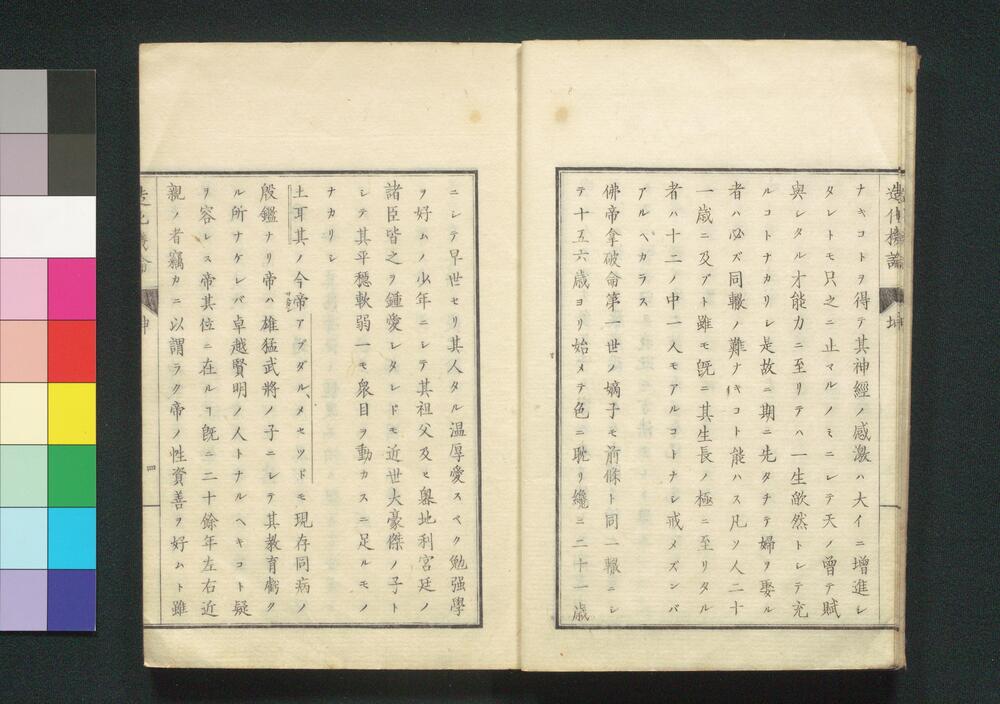 造化機論
坤
ナキコトヲ得テ其神經ノ感激ハ大イニ増進シ
タレトモ只之ニ止マルノミニシテ天ノ曾テ賦
與シタル才能力ニ至リテハ一生欿然トシテ充
ルコトナカリシ是故ニ期ニ先タチテ婦ヲ娶ル
者ハ必ズ同轍ノ難ナキコト能ハス凡ソ人二十
一歳ニ及ブト雖モ既ニ其生長ノ極ニ至リタル
者ハ十二ノ中一人モアルコトナシ戒メズンバ
アルヘカラス
佛帝拿破侖第一世ノ嫡子モ前條ト同一轍ニシ
テ十五六歳ヨリ始メテ色ニ耽リ纔ニ二十一歳
ニシテ早世セリ其人タル温厚愛スベク勉强學
ヲ好ムノ少年ニシテ其祖父及ヒ墺地利宮廷ノ
諸臣皆之ヲ鍾愛シタレドモ近世大豪傑ノ子ト
シテ其平穩軟弱一モ衆目ヲ動カスニ足ルモノ
ナカリシ
土耳其ノ今帝アブダル、メセツドモ現存同病ノ
殷鑑ナリ帝ハ雄猛武將ノ子ニシテ其教育虧ク
ル所ナケレバ卓越賢明ノ人トナルヘキコト疑
リ容レス帝其位ニ在ルヿ既ニ二十餘年左右近
親ノ者竊カニ以謂ラク帝ノ性資善ヲ好ムト雖
四
坤